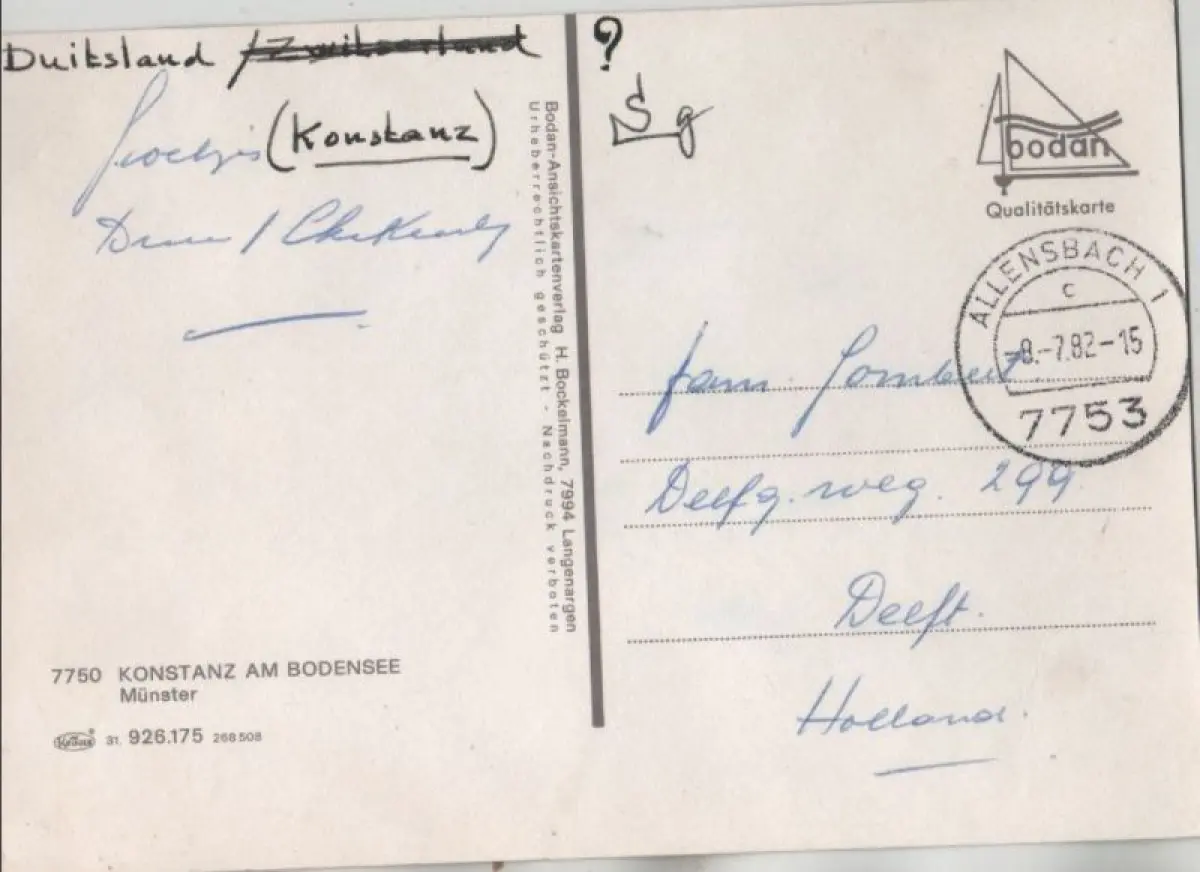 Duitsland /Zwitserland
(Konstanz)
Bodan-Ansichtskartenverlag H. Bockelmann, 7994 Langenargen
Urheberrechtlich geschützt - Nachdruck verboten
7750 KONSTANZ AM BODENSEE
Münster
Krüger
31. 926.175 268508
?
Sg
bodan
Qualitätskarte
ALLENSBACH 1
c
-8.-7.82-15
7753
fam.
Delfg. weg. 299
Delft.
Holland.